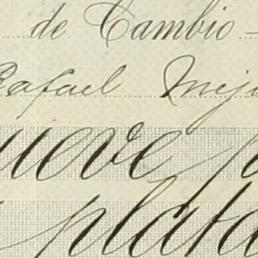 de Cambio
Rafael Mej
ueve p
plata